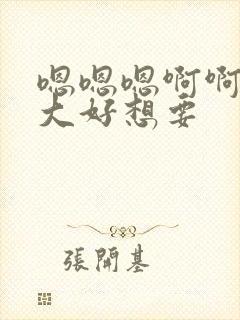 嗯嗯嗯啊啊
大好想要
張開基